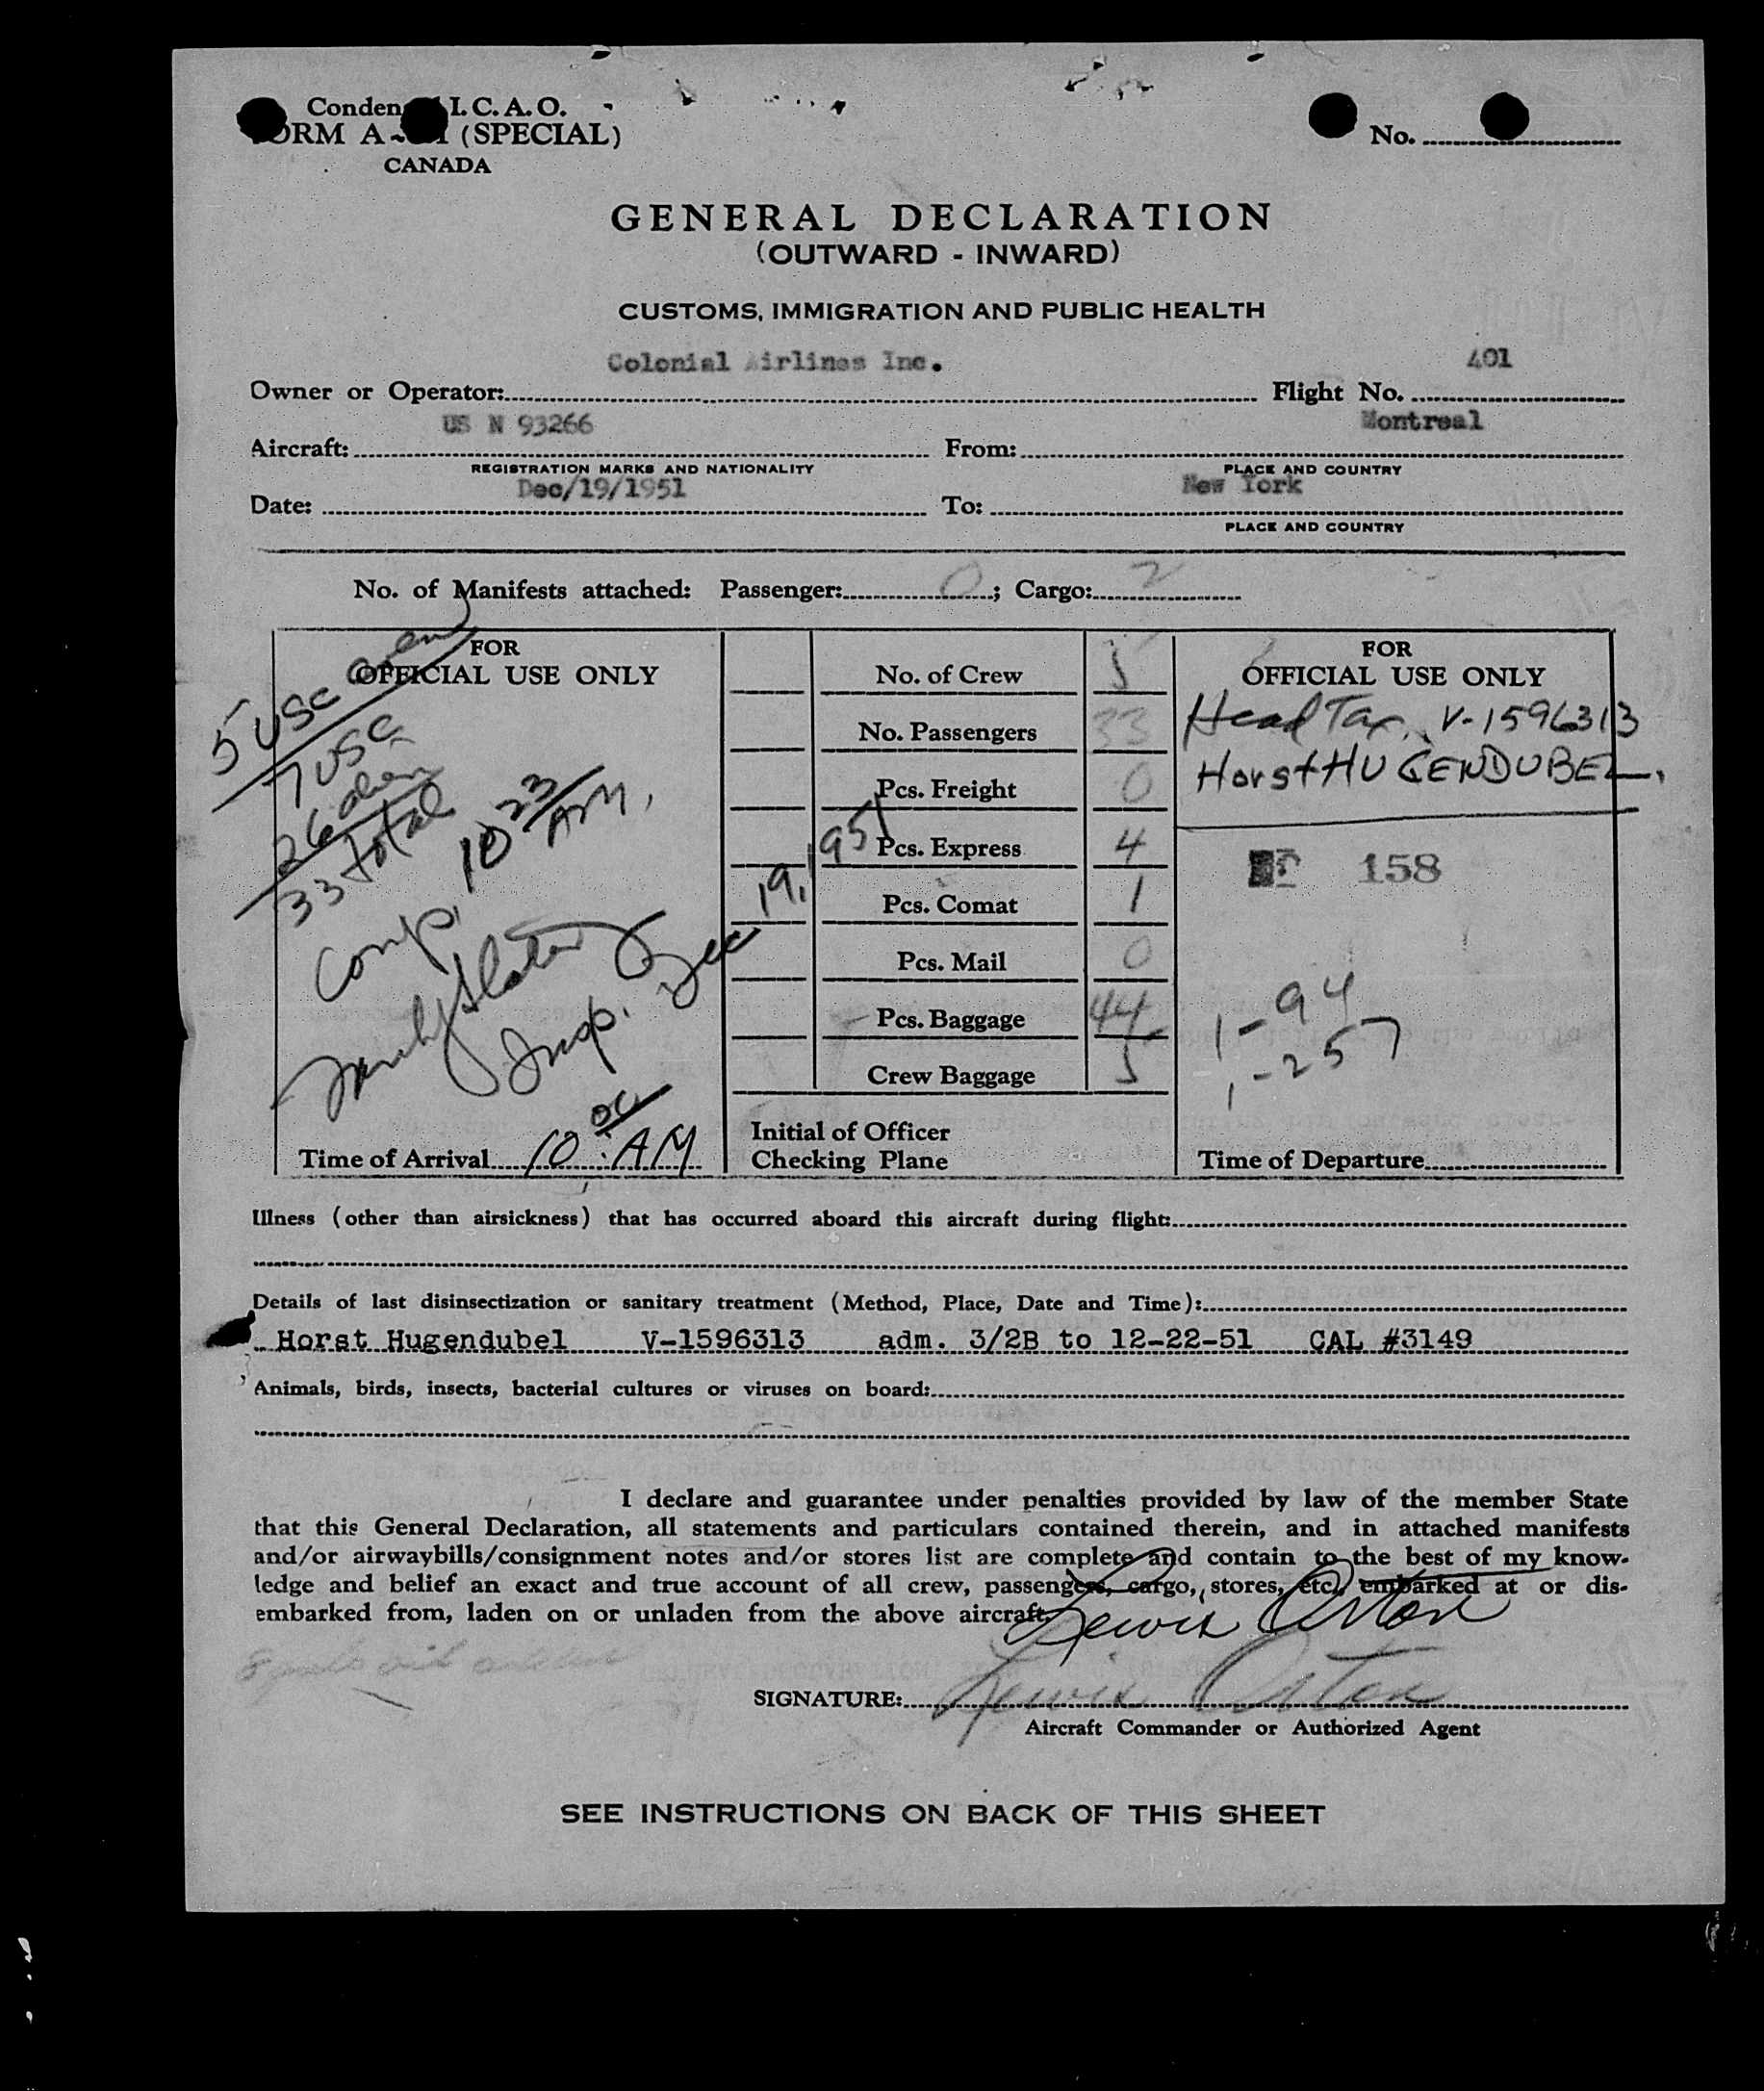 Conden I. C. A. O.
ORM A- (SPECIAL)
CANADA
No.
GENERAL DECLARATION
(OUTWARD - INWARD)
CUSTOMS, IMMIGRATION AND PUBLIC HEALTH
Colonial Airlines Inc. 401
Owner or Operator: Flight No.
US N 93266 Montreal
Aircraft: From:
REGISTRATION MARKS AND NATIONALITY PLACE AND COUNTRY
Dec/19/1951 New York
Date: To:
PLACE AND COUNTRY
No. of Manifests attached: Passenger: 0; Cargo: 2
FOR
OFFICIAL USE ONLY
5 USC
7 USC
26 alien
33 total
Comp. 10 23 AM.
Insp. Dec 19, 1951
Time of Arrival 10:00 AM
No. of Crew 5
No. Passengers 33
Pcs. Freight 0
Pcs. Express 4
Pcs. Comat 1
Pcs. Mail 0
Pcs. Baggage 44
Crew Baggage 5
Initial of Officer
Checking Plane
FOR
OFFICIAL USE ONLY
Head Tax V-1596313
Horst HUGENDUBEL.
158
1-94
1-257
Time of Departure
Illness (other than airsickness) that has occurred aboard this aircraft during flight:
Details of last disinsectization or sanitary treatment (Method, Place, Date and Time):
Horst Hugendubel V-1596313 adm. 3/2B to 12-22-51 CAL #3149
Animals, birds, insects, bacterial cultures or viruses on board:
I declare and guarantee under penalties provided by law of the member State
that this General Declaration, all statements and particulars contained therein, and in attached manifests
and/or airwaybills/consignment notes and/or stores list are complete and contain to the best of my know-
ledge and belief an exact and true account of all crew, passengers, cargo, stores, etc. embarked at or dis-
embarked from, laden on or unladen from the above aircraft.
Lewis Orton
SIGNATURE: Lewis Orton
Aircraft Commander or Authorized Agent
SEE INSTRUCTIONS ON BACK OF THIS SHEET